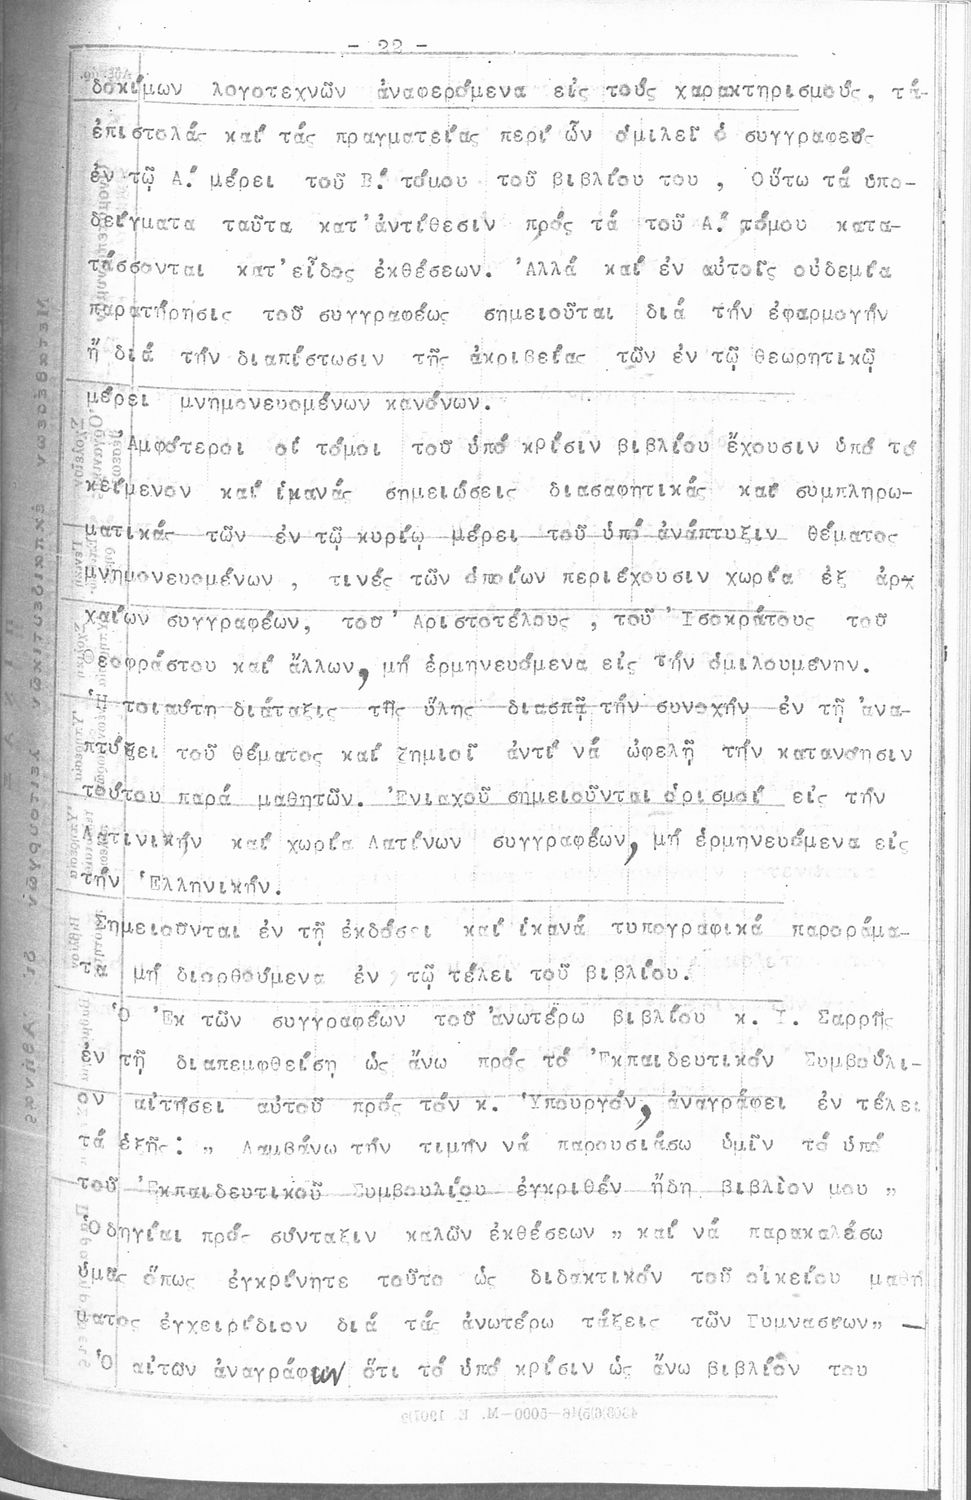 - 22 -
δοκίμων λογοτεχνῶν ἀναφερόμενα εἰς τούς χαρακτηρισμούς, τά-
ἐπιστολάς καί τάς πραγματείας περί ὧν ὁμιλεῖ ὁ συγγραφεύς
ἐν τῷ Α.' μέρει τοῦ Β.' τόμου τοῦ βιβλίου του , Οὕτω τά ὑπο-
δείγματα ταῦτα κατ' ἀντίθεσιν πρός τά τοῦ Α.' τόμου κατα-
τάσσονται κατ' εἶδος ἐκθέσεων. 'Αλλά καί ἐν αὐτοῖς οὐδεμία
παρατήρησις τοῦ συγγραφέως σημειοῦται διά τήν ἐφαρμογήν
ἤ διά τήν διαπίστωσιν τῆς ἀκριβείας τῶν ἐν τῷ θεωρητικῷ
μέρει μνημονευομένων κανόνων.
'Αμφότεροι οἱ τόμοι τοῦ ὑπό κρίσιν βιβλίου ἔχουσιν ὑπό τό
κείμενον καί ἱκανάς σημειώσεις διασαφητικάς καί συμπληρω-
ματικάς τῶν ἐν τῷ κυρίῳ μέρει τοῦ ὑπό ἀνάπτυξιν θέματος
μνημονευομένων , τινές τῶν ὁποίων περιέχουσιν χωρία ἐξ ἀρχ
χαίων συγγραφέων, τοῦ 'Αριστοτέλους , τοῦ 'Ισοκράτους τοῦ
Θεοφράστου καί ἄλλων, μή ἑρμηνευόμενα εἰς τήν ὁμιλουμένην.
'Η τοιαύτη διάταξις τῆς ὕλης διασπᾷ τήν συνοχήν ἐν τῇ ἀνα-
πτύξει τοῦ θέματος καί ζημιοῖ ἀντί νά ὠφελῇ τήν κατανόησιν
τούτου παρά μαθητῶν. 'Ενιαχοῦ σημειοῦνται ὁρισμοί εἰς τήν
Λατινικήν καί χωρία Λατίνων συγγραφέων, μή ἑρμηνευόμενα εἰς
τήν 'Ελληνικήν.
Σημειοῦνται ἐν τῇ ἐκδόσει καί ἱκανά τυπογραφικά παροράμα-
τα μή διορθούμενα ἐν τῷ τέλει τοῦ βιβλίου.
'Ο 'Εκ τῶν συγγραφέων τοῦ ἀνωτέρω βιβλίου κ. Ι. Σαρρῆς
ἐν τῇ διαπεμφθείσῃ ὡς ἄνω πρός τό 'Εκπαιδευτικόν Συμβούλι-
ον αἰτήσει αὐτοῦ πρός τόν κ. 'Υπουργόν, ἀναγράφει ἐν τέλει
τά ἑξῆς: „ Λαμβάνω τήν τιμήν νά παρουσιάσω ὑμῖν τό ὑπό
τοῦ 'Εκπαιδευτικοῦ Συμβουλίου ἐγκριθέν ἤδη βιβλίον μου „
'Οδηγίαι πρός σύνταξιν καλῶν ἐκθέσεων „ καί νά παρακαλέσω
ὑμᾶς ὅπως ἐγκρίνητε τοῦτο ὡς διδακτικόν τοῦ οἰκείου μαθή
ματος ἐγχειρίδιον διά τάς ἀνωτέρω τάξεις τῶν Γυμνασίων„ —
'Ο αἰτῶν ἀναγράφων ὅτι τό ὑπό κρίσιν ὡς ἄνω βιβλίον του